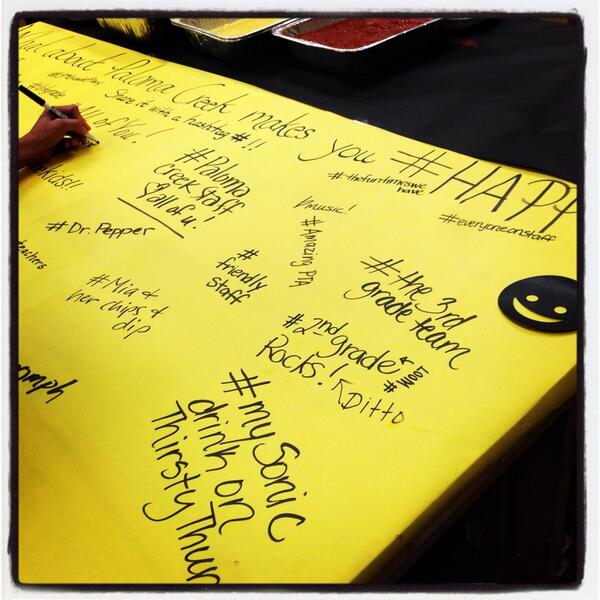 about Paloma Creek makes you #HAPP
Share it with a hashtag #!!
All of You!
kids!!
#Paloma
Creek Staff
all of u!
#thefuntimeswe
have
#everyoneonstaff
music!
#Amazing PTA
#Dr. Pepper
#
friendly
staff
#the 3rd
grade team
teachers
#Mia &
her chips &
dip
#2nd grade
Rocks!
#WOOT
Ditto
omph
#my Sonic
drink on
Thirsty Thur